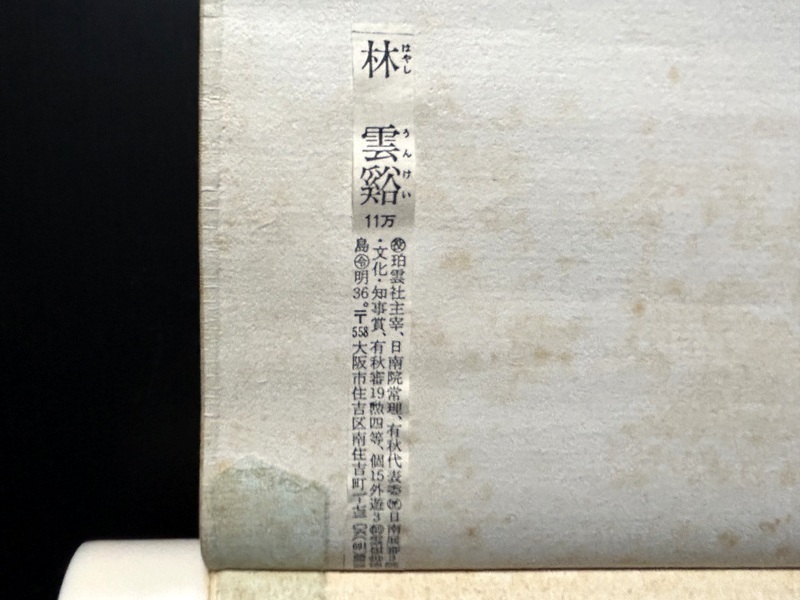 林 雲谿
はやし うんけい
11万
珀雲社主宰、日南院常理、有秋代表委 日南展
・文化・知事賞、有秋審19勲四等、個15外遊3
島 令 明36。〒558大阪市住吉区南住吉町